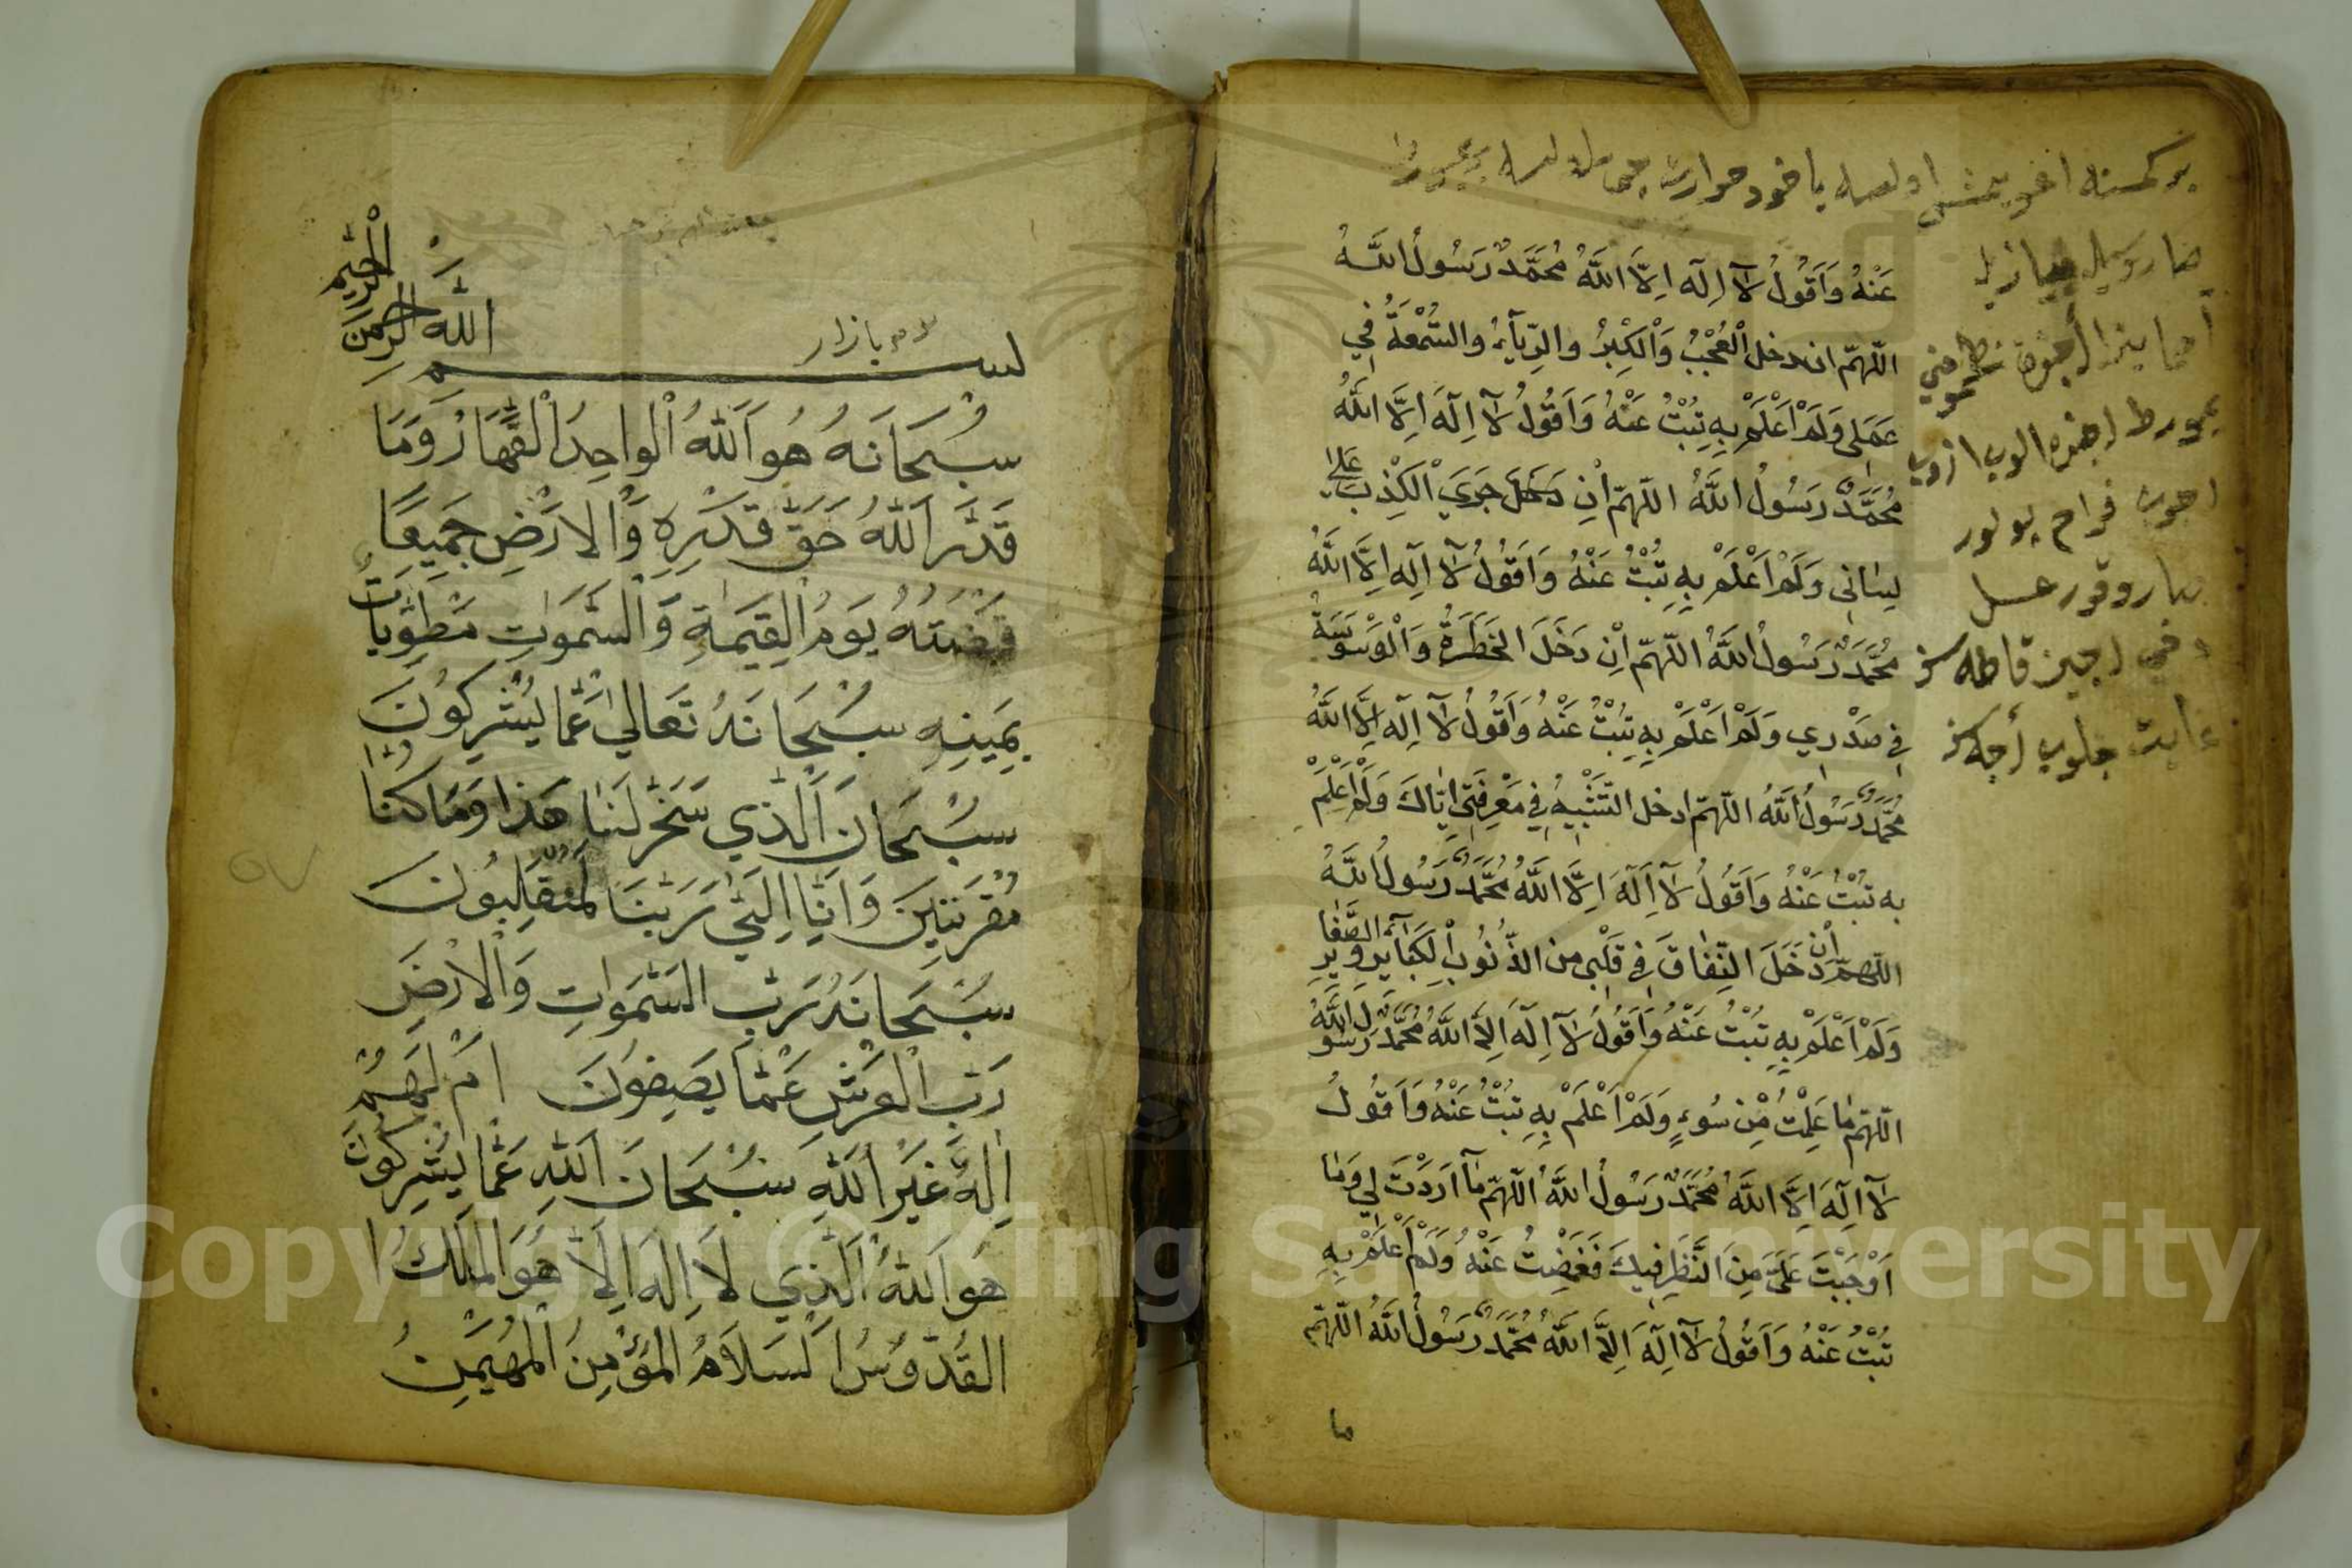 بر كمسنه اغو يمش اولسه ياخود
عَنْهُ وَاَقُولُ لَآ اِلٰهَ اِلَّا اللّٰهُ مُحَمَّدٌ رَسُولُ اللّٰهِ
اللّٰهمّ ان دخل الْعُجْبُ وَالْكِبْرُ والرِّيَآءُ والسُّمْعَةُ فِي
عَمَلِي وَلَمْ اَعْلَمْ بِهِ تُبْتُ عَنْهُ وَاَقُولُ لَآ اِلٰهَ اِلَّا اللّٰهُ
مُحَمَّدٌ رَسُولُ اللّٰهُ اللّٰهمّ اِن دَخَلَ جَرَيَ الْكَذِبُ عَلَى
لِسَانِي وَلَمْ اَعْلَمْ بِهِ تُبْتُ عَنْهُ وَاَقُولُ لَآ اِلٰهَ اِلَّا اللّٰهُ
مُحَمَّدٌ رَسُولُ اللّٰهُ اللّٰهمّ اِنْ دَخَلَ الخَطَرَةُ وَالْوَسْوَسَةُ
فِي صَدْرِي وَلَمْ اَعْلَمْ بِهِ تُبْتُ عَنْهُ وَاَقُولُ لَآ اِلٰهَ اِلَّا اللّٰهُ
مُحَمَّدٌ رَسُولُ اللّٰهُ اللّٰهمّ ادخل التَّشْبِيهُ فِي مَعْرِفَتِي اِيَّاكَ وَلَمْ اَعْلَمْ
بِه تُبْتُ عَنْهُ وَاَقُولُ لَآ اِلٰهَ اِلَّا اللّٰهُ مُحَمَّدٌ رَسُولُ اللّٰهُ
اللّٰهمّ اِنْ دَخَلَ النِّفَاقَ فِي قَلْبِي من الذُّنُوبِ الْكَبَآئِرِ وَالصَّغَايِرِ
وَلَمْ اَعْلَمْ بِهِ تُبْتُ عَنْهُ وَاَقُولُ لَآ اِلٰهَ اِلَّا اللّٰهُ مُحَمَّدٌ رَسُولُ اللّٰهُ
اللّٰهمّ مَا عَلِمْتُ مِنْ سُوءٍ وَلَمْ اَعْلَمْ بِهِ تُبْتُ عَنْهُ وَاَقُولُ
لَآ اِلٰهَ اِلَّا اللّٰهُ مُحَمَّدٌ رَسُولُ اللّٰهُ اللّٰهمّ مَآ اَرَدْتَ لِي وَمَا
اَوْجَبْتَ عَلَيَّ مِنَ النَّظَرِ فِيكَ فَغَمَضْتُ عَنْهُ وَلَمْ اَعْلَمْ بِهِ
تُبْتُ عَنْهُ وَاَقُولُ لَآ اِلٰهَ اِلَّا اللّٰهُ مُحَمَّدٌ رَسُولُ اللّٰهُ اللّٰهمّ
ما
بازار
بسم اللّٰه الرحمن الرحيم
سُبْحَانَهُ هُوَ اَللّٰهُ الْواحِدُ الْقَهَّارُ وَمَا
قَدَرَ اَللّٰهُ حَقَّ قَدْرِهِ وَالارْضِ جَمِيعًا
قَبْضَتُهُ يَوْمُ الْقِيَمَةِ وَالسَّمَوَاتِ مَطْوِيَّاتٌ
بِيَمِينِهِ سُبْحَانَهُ تَعَالِي عَمَّا يُشْرِكُونَ
سُبْحَانَ اَلَّذِي سَخَّرَ لَنَا هَذَا وَمَا كُنَّا
مُقْرِنِينَ وَاِنَّا اِلَى رَبِّنَا لَمُنْقَلِبُونَ
سُبْحَانَهُ رَبِّ السَّمَوَاتِ وَالْاَرْضَ
رَبِّ الْعَرْشِ عَمَّا يَصِفُونَ اَمْ لَهُمْ
اِلٰهٌ غَيْرُ اللّٰهِ سُبْحَانَ اَللّٰهِ عَمَّا يُشْرِكُونَ
هُوَ اَللّٰهُ الَّذِي لَا اِلٰهَ اِلَّا هُوَ الْمَلِكُ ا
القُدُّوسُ السَلَامُ المُؤْمِنُ الْمُهَيْمِنُ
٥٧
Copyright © King Saud University